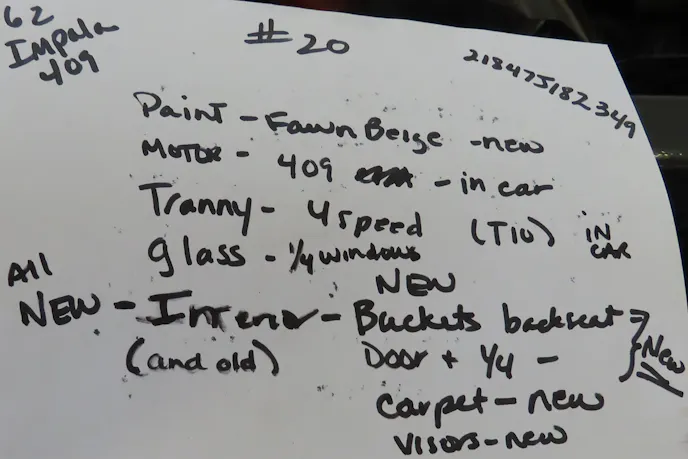 62
Impala
409
#20
218475182349
Paint - Fawn Beige - new
MOTOR - 409 - in car
Tranny - 4 speed (T10) IN CAR
glass - 1/4 windows
All NEW - Interior - NEW Buckets backseat
(and old) Door + 1/4 - } New
Carpet - new
Visors - new